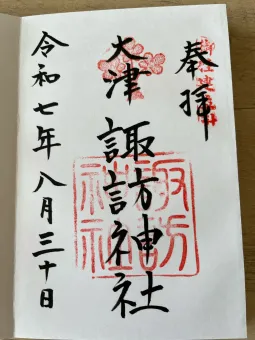 奉拝
大津 諏訪神社
諏訪神社
令和七年八月三十日